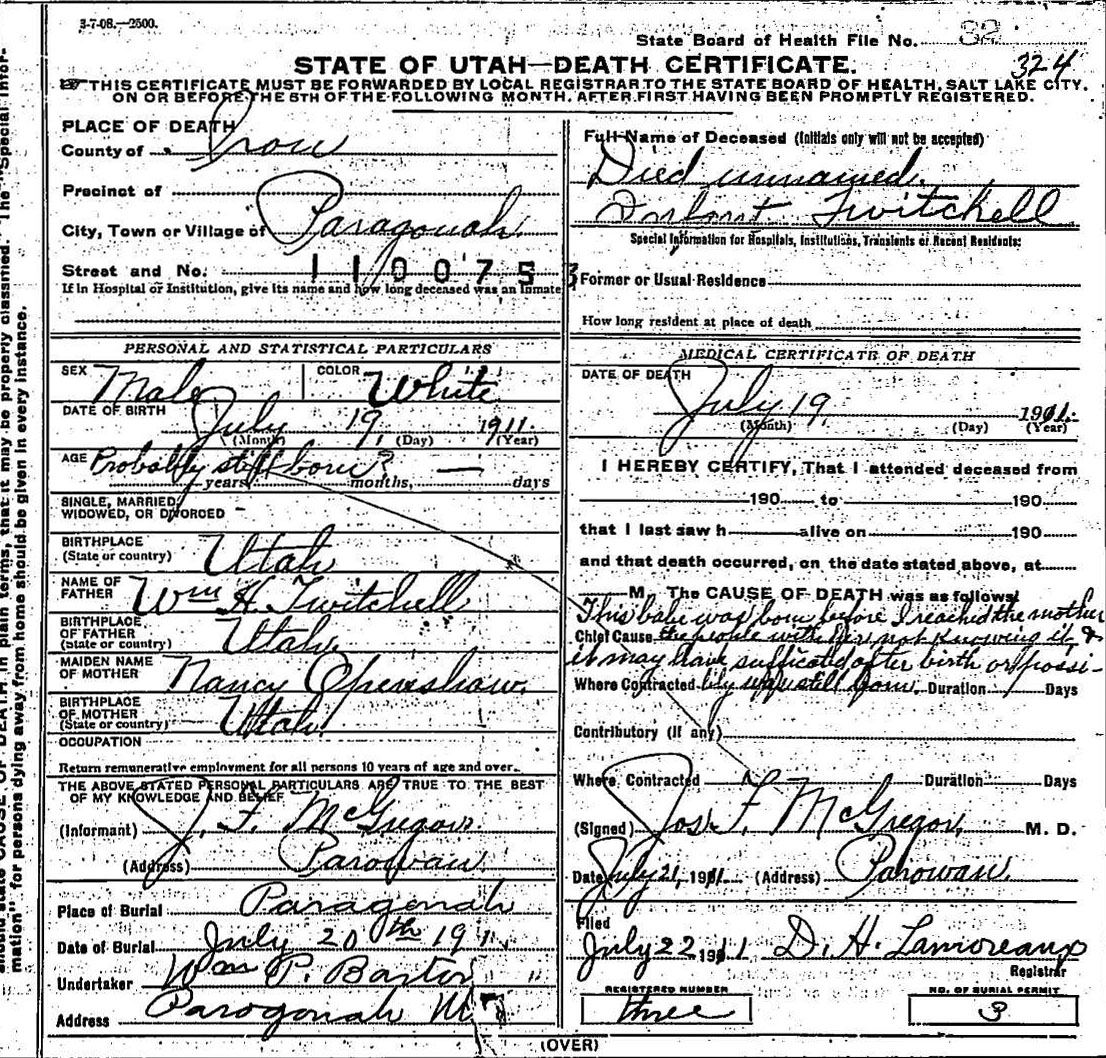 3-7-08.—2500.
State Board of Health File No. 82
324
STATE OF UTAH—DEATH CERTIFICATE.
THIS CERTIFICATE MUST BE FORWARDED BY LOCAL REGISTRAR TO THE STATE BOARD OF HEALTH, SALT LAKE CITY,
ON OR BEFORE THE 5TH OF THE FOLLOWING MONTH, AFTER FIRST HAVING BEEN PROMPTLY REGISTERED.
PLACE OF DEATH
County of Iron
Precinct of
City, Town or Village of Paragonah
Street and No. 110075
If in Hospital or Institution, give its name and how long deceased was an Inmate
PERSONAL AND STATISTICAL PARTICULARS
SEX Male COLOR White
DATE OF BIRTH July 19, 1911.
(Month) (Day) (Year)
AGE Probably still born? —
years months, days
SINGLE, MARRIED,
WIDOWED, OR DIVORCED
BIRTHPLACE
(State or country) Utah
NAME OF
FATHER Wm H. Twitchell
BIRTHPLACE
OF FATHER
(State or country) Utah.
MAIDEN NAME
OF MOTHER Nancy Openshaw.
BIRTHPLACE
OF MOTHER
(State or country) Utah.
OCCUPATION
Return remunerative employment for all persons 10 years of age and over.
THE ABOVE STATED PERSONAL PARTICULARS ARE TRUE TO THE BEST
OF MY KNOWLEDGE AND BELIEF
(Informant) J. F. McGregor.
(Address) Parowan
Place of Burial Paragonah
Date of Burial July 20th 191
Undertaker Wm P. Barton
Address Paragonah
Full Name of Deceased (Initials only will not be accepted)
Died unnamed.
Infant Twitchell
Special Information for Hospitals, Institutions, Transients or Recent Residents:
Former or Usual Residence
How long resident at place of death
MEDICAL CERTIFICATE OF DEATH
DATE OF DEATH
July 19, 1911.
(Month) (Day) (Year)
I HEREBY CERTIFY, That I attended deceased from
190 to 190
that I last saw h alive on 190
and that death occurred, on the date stated above, at
M. The CAUSE OF DEATH was as follows:
This babe was born before I reached the mother
Chief Cause the people with her not knowing it, &
it may have sufficated after birth or possi-
Where Contracted bly was still born. Duration Days
Contributory (If any)
Where Contracted Duration Days
(Signed) Jos. F. McGregor, M. D.
Date July 21, 1911 (Address) Parowan
Filed
July 22 1911 D. H. Lamoreaux
Registrar
REGISTERED NUMBER
three
NO. OF BURIAL PERMIT
3
(OVER)
should state CAUSE OF DEATH in plain terms, that it may be properly classified. The "Special Infor-
mation" for persons dying away from home should be given in every instance.